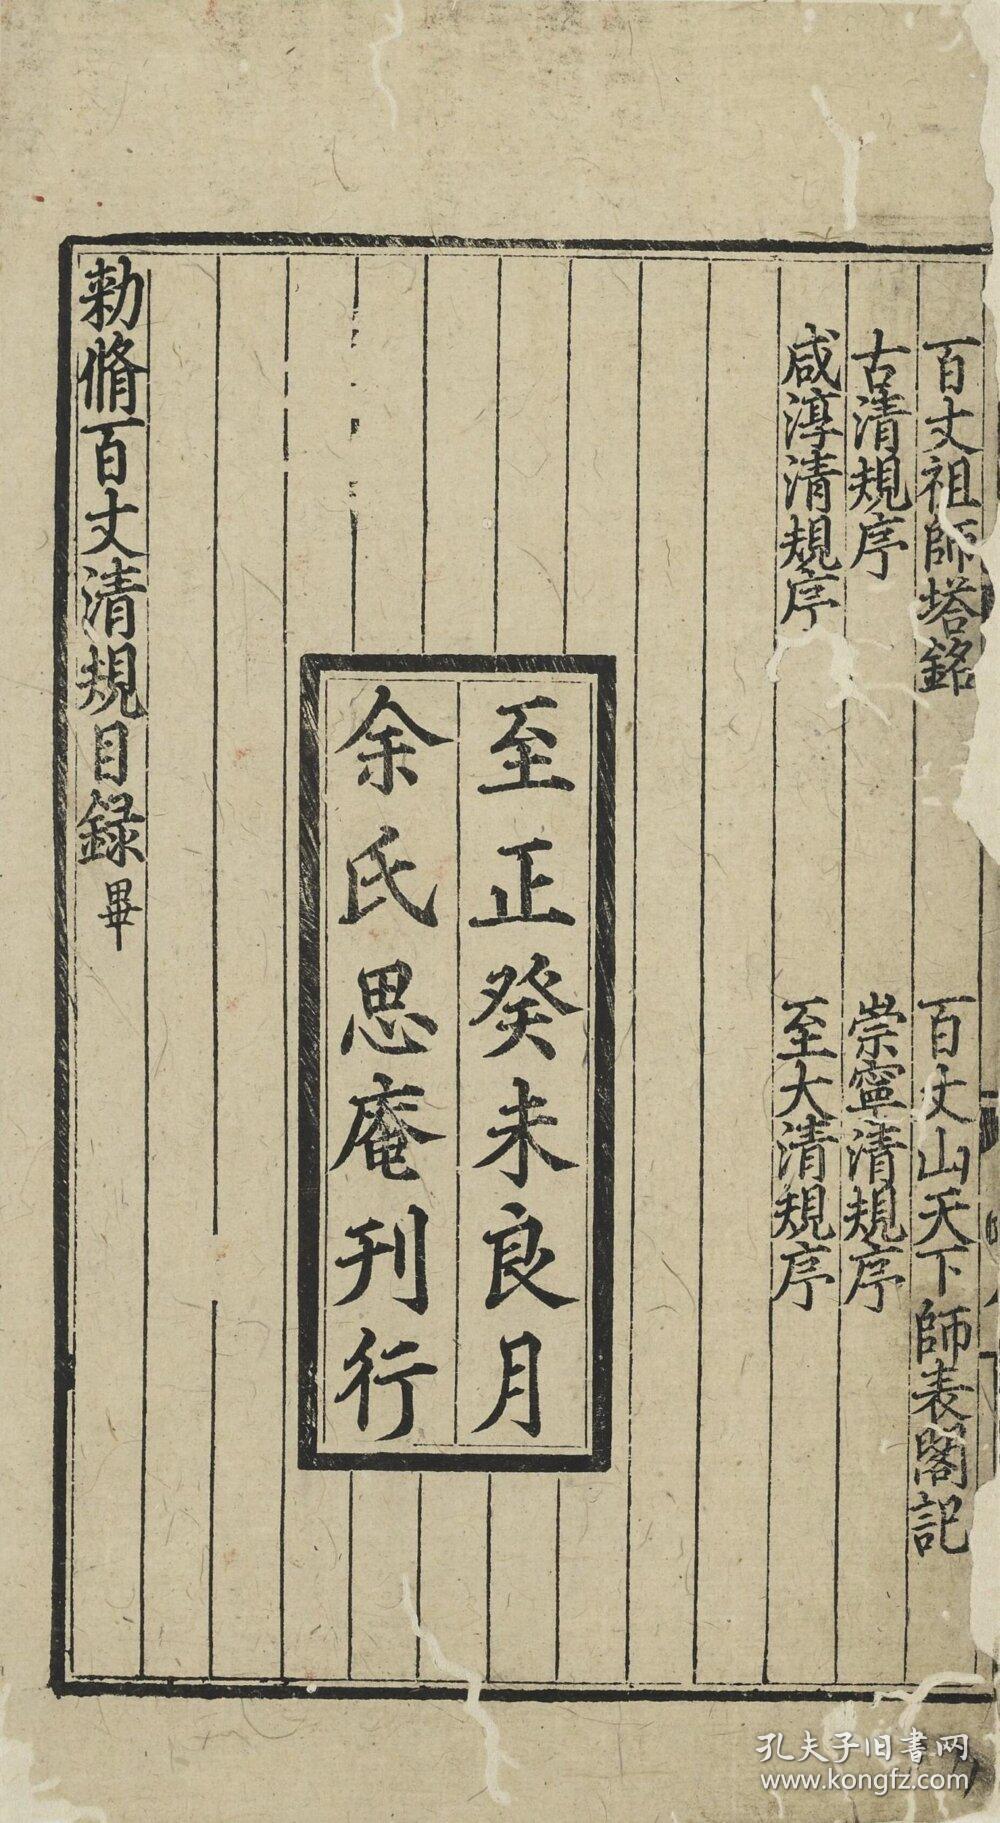 百丈祖師塔銘
百丈山天下師表閣記
古清規序
崇寧清規序
咸淳清規序
至大清規序
至正癸未良月
余氏思庵刊行
勑脩百丈清規目録畢
孔夫子旧書网
www.kongfz.com